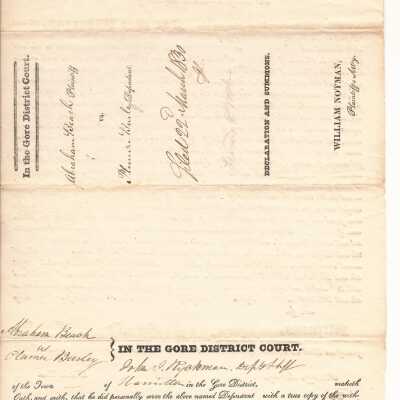 In the Gore District Court.
Abraham Beach Plaintiff
vs.
Defendant
Filed 22d March 1830
DECLARATION AND SUMMONS.
WILLIAM NOTMAN,
Plaintiff's Att'y.
Abraham Beach
vs
IN THE GORE DISTRICT COURT.
John Ryckman, Dep'y Shff
of the Town of Hamilton in the Gore District, maketh
Oath and saith, that he did personally serve the above named Defendant with a true copy of the with